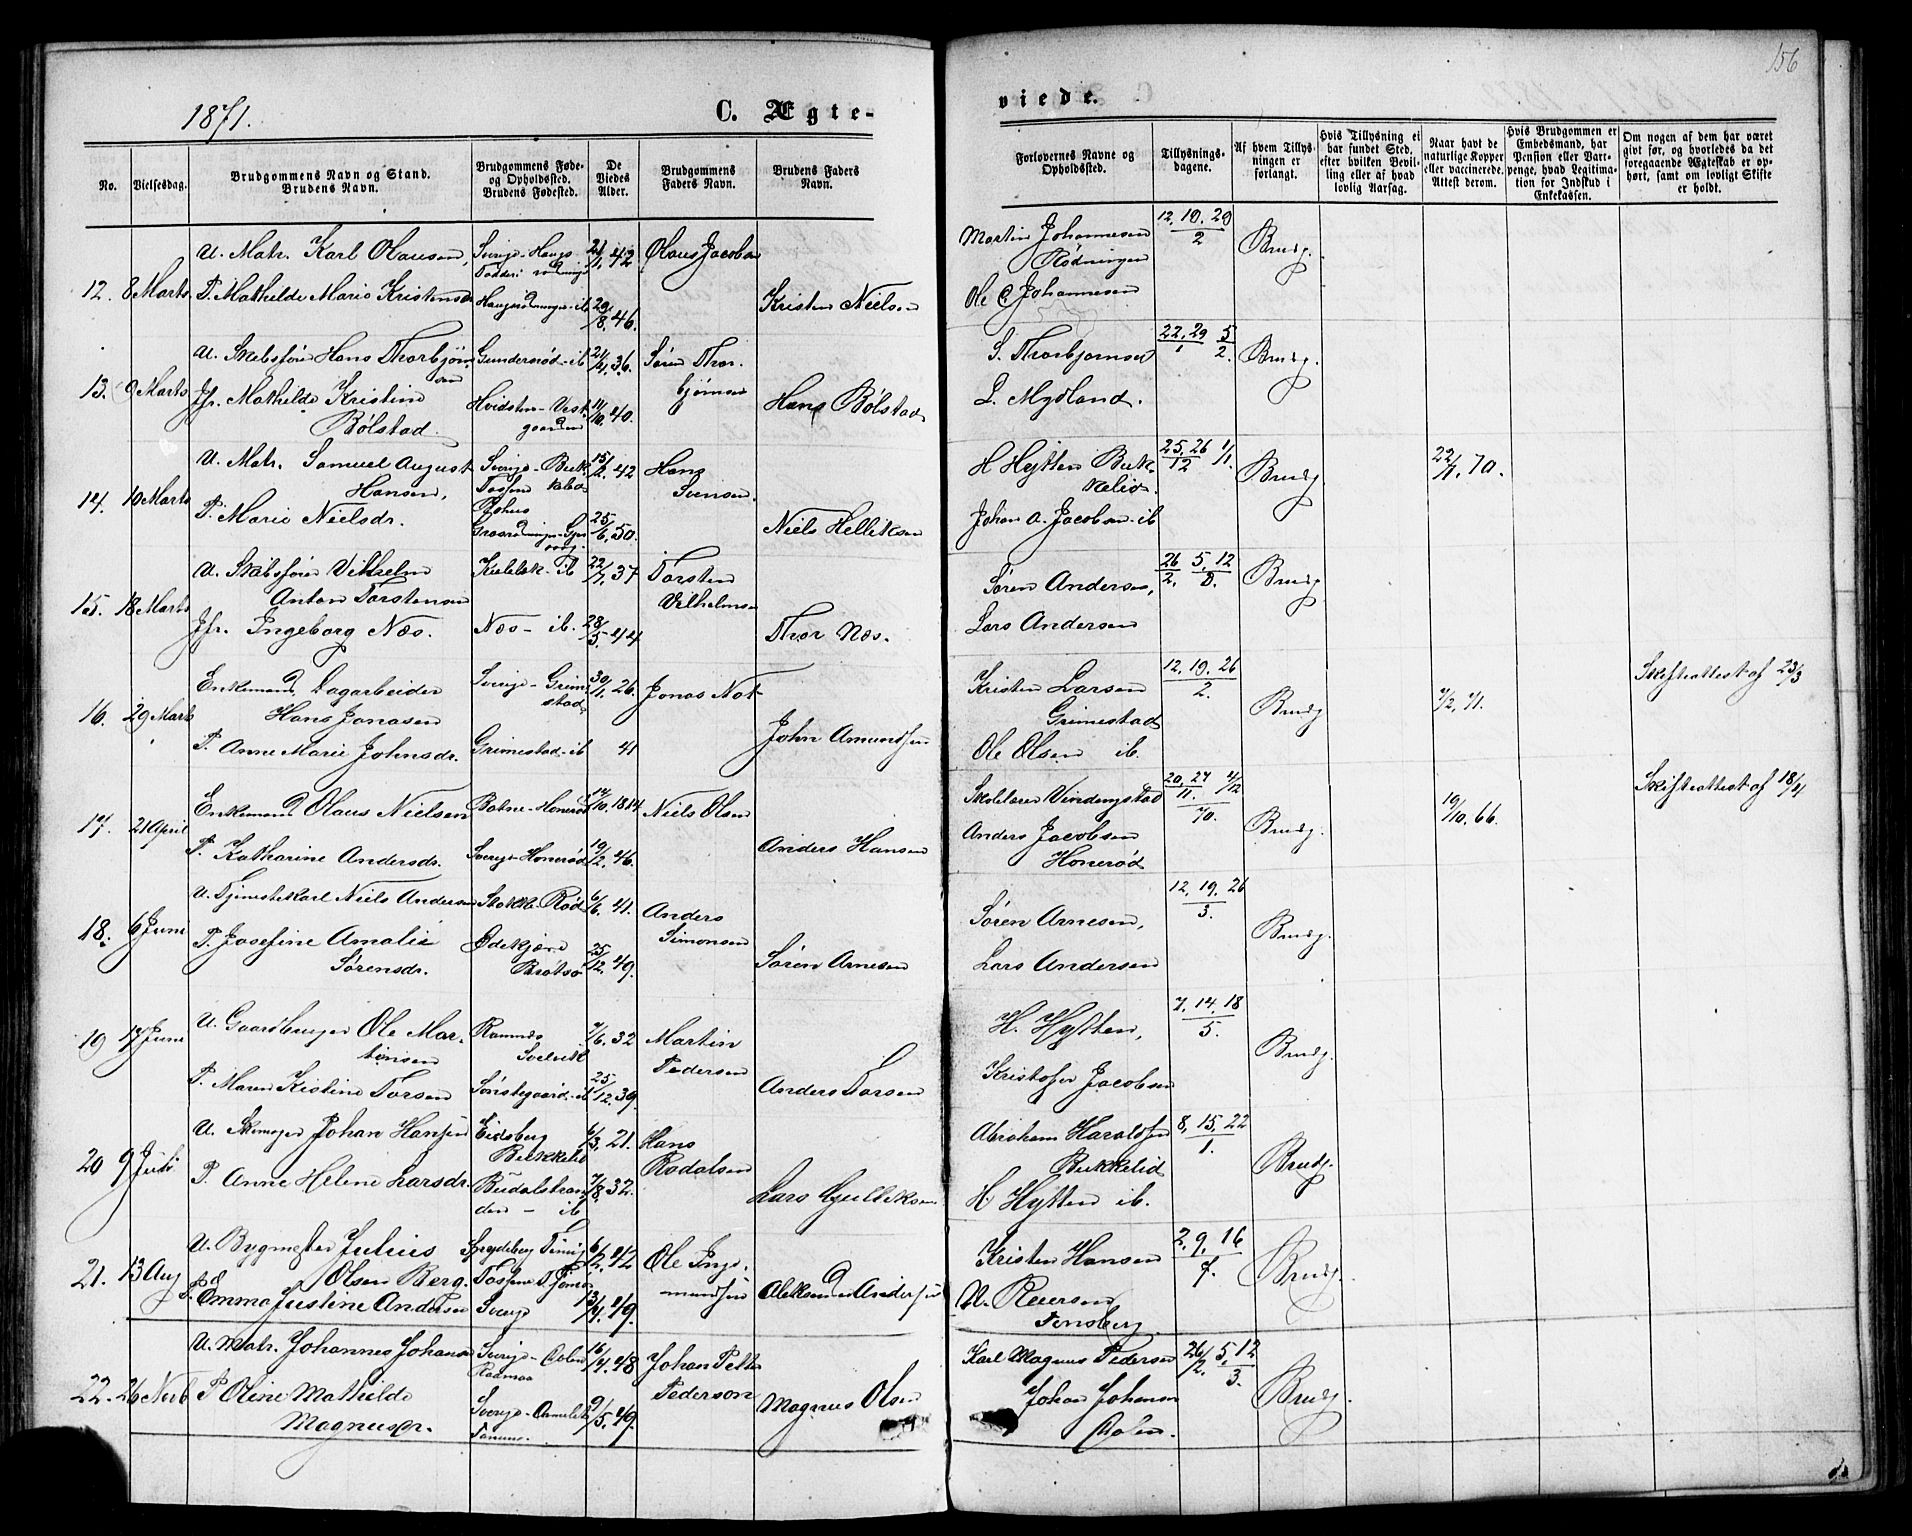 156
1871.
C. Ægte-
viede.
No.
Vielsesdag.
Brudgommens Navn og Stand.
Brudens Navn.
Brudgommens Føde-
og Opholdssted.
Brudens Fødested.
De
Viedes
Alder.
Brudgommens
Faders Navn.
Brudens Faders
Navn.
Forlovernes Navne og
Opholdssted.
Tillysnings-
dagene.
Af hvem Tillys-
ningen er
forlangt.
Hvis Tillysning ei
har fundet Sted,
efter hvilken Bevil-
ling eller af hvad
lovlig Aarsag.
Naar havt de
naturlige Kopper
eller vaccinerede.
Attest derom.
Hvis Brudgommen er
Embedsmand, har
Pension eller Vart-
penge, hvad Legitima-
tion for Indskud i
Enkekassen.
Om nogen af dem har været
gift før, og hvorledes da det
foregaaende Ægteskab er op-
hørt, samt om lovligt Skifte
er holdt.
12. 8 Marts
U. Matr. Karl Olausen,
P. Mathilde Marie Kristensdr
42
29/8. 46.
Olaus Jacobsen
Kristen Nielsen
Martin Johannesen
Rødningen
Ole C Johannesen
12, 19. 29
2
Brudg.
13. 9 Marts
U. Skibsfører Hans Thorbjørn-
sen
Jfr. Mathilde Kristine
Bølstad.
Gunderød - ib
Hvidsten - Vest
gaarden
36.
11/10. 40.
Søren Thor-
bjørnsen
Hans Bølstad
S. Thorbjørnsen
L. Mydland.
22, 29 5
1 2.
Brudg.
14. 10 Marts
U. Matr. Samuel August
Hansen,
P. Marie Nielsdr.
15/2. 42
25/6. 50.
Hans
Svensen.
Niels Helliksen
H Hytten Bek-
kelid.
Johan A. Jacobsen ib
25, 26 1/1
12
Brudg
22/1. 70.
15. 18 Marts
U. Skibsfører Vilhelm
Anton Torstensen
Jfr. Ingeborg Næs.
Næs - ib.
22/7. 37
28/5. 44
Torsten
Vilhelmsen
Thor Næs.
Søren Andersen,
Lars Andersen
26 5, 12
2. 3.
Brudg
16. 29 Marts
Enkemand, Dagarbeider
Hans Jonasen
P. Anne Marie Johnsdr.
Sverige - Grime-
stad,
Grimestad - ib
30/1. 26.
41
Jonas Not
John Amundsen
Kristen Larsen
Grimestad
Ole Olsen ib.
12, 19. 26
2.
Brudg
7/2, 71.
Skifteattest af 23/3
17. 21 April
Enkemand Olaus Nielsen
P. Katharine Andersdr.
Botne - Honerød
Sverige - Honerød
14/10. 1814
19/2. 46.
Niels Olsen
Anders Hansen
Skolelærer Vindengstad
Anders Jacobsen
Honerød
20, 27 4/12
11.
70.
Brudg.
19/10. 66.
Skifteattest af 18/4
18. 6 Juni
U. Tjenestekarl Niels Andersen
P. Josefine Amalie
Sørensdr.
Stokke - Rød
Ødekjære
Bratsø
6/6. 41.
25/12. 49.
Anders
Simonsen
Søren Arnesen
Søren Arnesen,
Lars Andersen
12, 19. 26
3.
Brudg.
19 17 Juni
U. Gaardbruger Ole Mar-
tinsen
P. Maren Kistine Torsen
Ramnes
Svelvik
Sønstegaard - ib
7/6. 32
25/12. 39.
Martin
Pedersen
Anders Torsen
H. Hytten,
Kristofer Jacobsen
7, 14. 18
5.
Brudg.
20 9 Juli
U. Skomager Johan Hansen
P. Anne Helene Larsdr.
Eidsberg
Bekkelid
den - ib
6/3. 21.
7/8. 32.
Hans
Rodalsen
Lars Gulliksen
Abraham Haraldsen
Bekkelid
H. Hytten ib.
8, 15, 22
1.
Brudg.
21. 13 Aug
U. Bygmester Julius
Olsen Berg.
P. Emma Justine Andersen
Sverige
6/2. 42
13/9. 49.
Ole Inge-
mundsen
Aleksander Andersen
Kristen Hansen
N. Reiersen
Tønsberg.
2, 9, 16
7.
Brudg.
22. 26 Novb
U. Matr. Johannes Johansen
P. Oline Mathilde
Magnusdr.
16/4. 48
9/5. 49.
Johan Petter
Pederson
Magnus Olsen
Karl Magnus Pedersen
Johan Johansen
26/2. 5, 12
3.
Brudg.